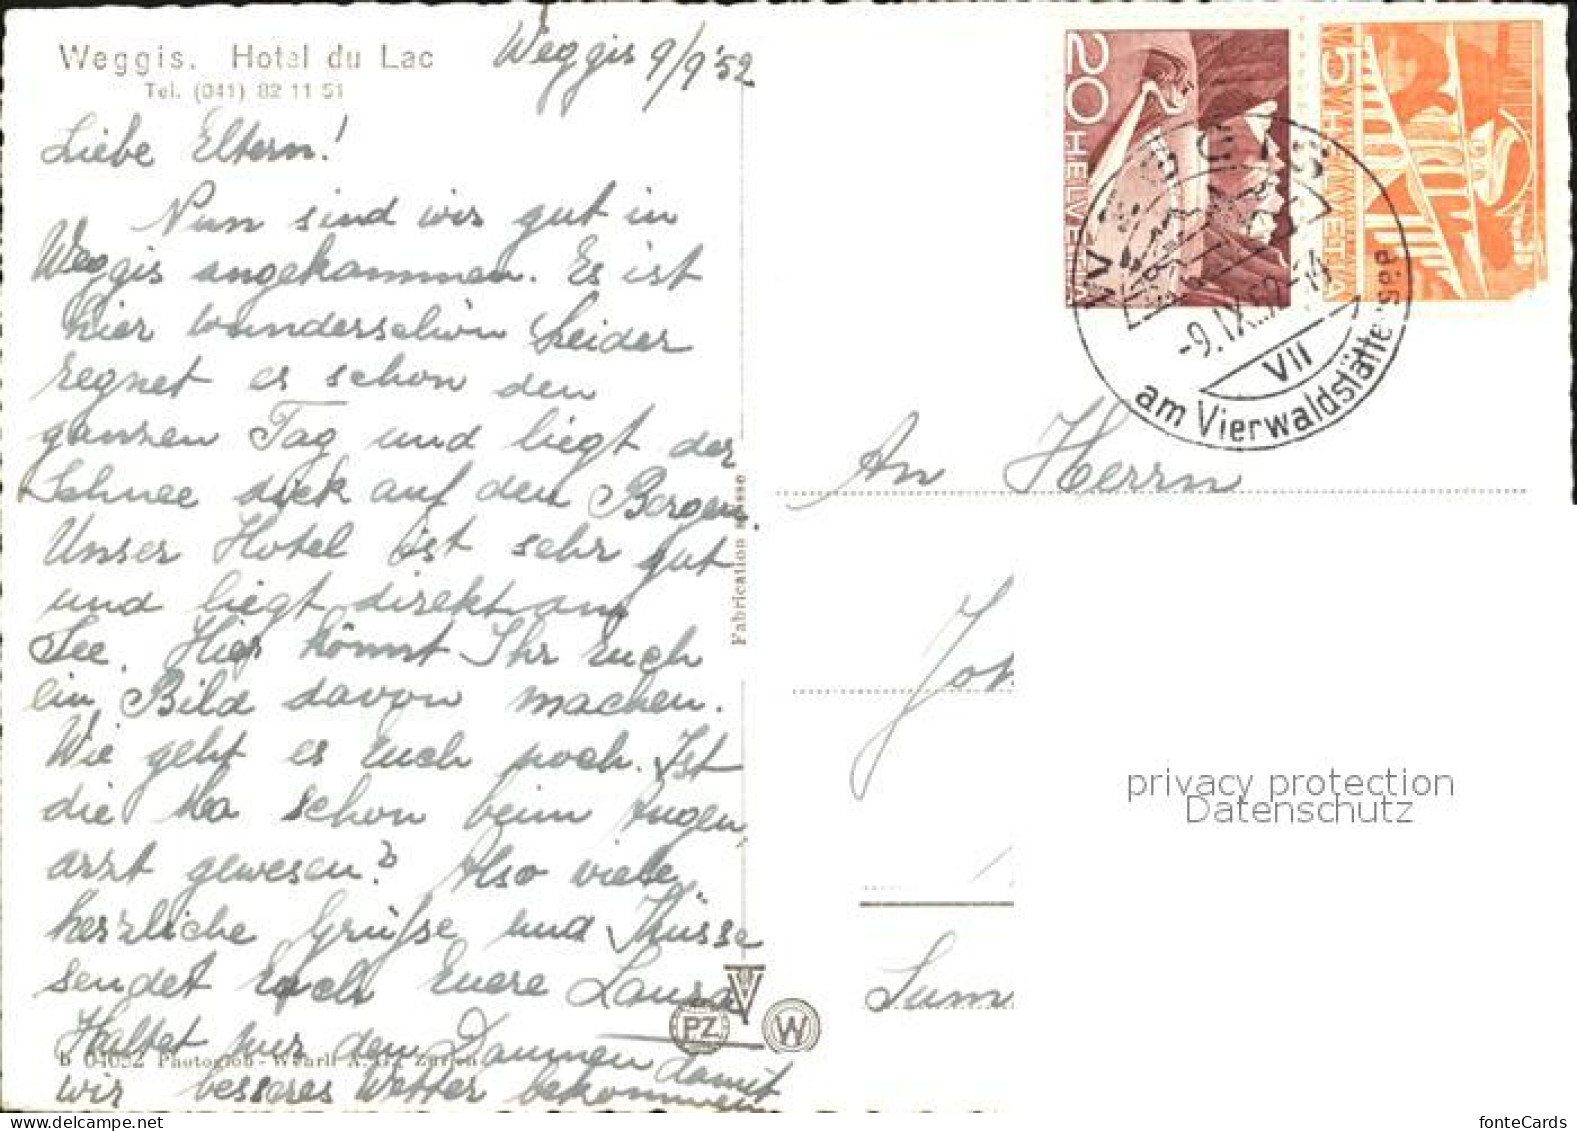 Weggis. Hotel du Lac
Tel. (041) 82 11 51
Weggis 9/9 '52
Liebe Eltern!
Nun sind wir gut in
Weggis angekommen. Es ist
hier wunderschön Leider
regnet es schon den
ganzen Tag und liegt der
Schnee dick auf den Bergen.
Unser Hotel ist sehr gut
und liegt direkt am
See. Hier könnt Ihr Euch
ein Bild davon machen.
Wie geht es Euch noch. Ist
die Ma schon beim Augen
arzt gewesen? Also viele
herzliche Grüße und Küsse
sendet Euch Eure Laura
Haltet nur den Daumen damit
wir besseres Wetter bekommen
b 04052 Photoglob-Wehrli A.G., Zürich
Fabrication suisse
PZ
W
20 HELVETIA
5 HELVETIA
WEGGIS
-9.IX.52-
VII
am Vierwaldstättersee
An Herrn
Joh
Sum
privacy protection
Datenschutz
fonteCards